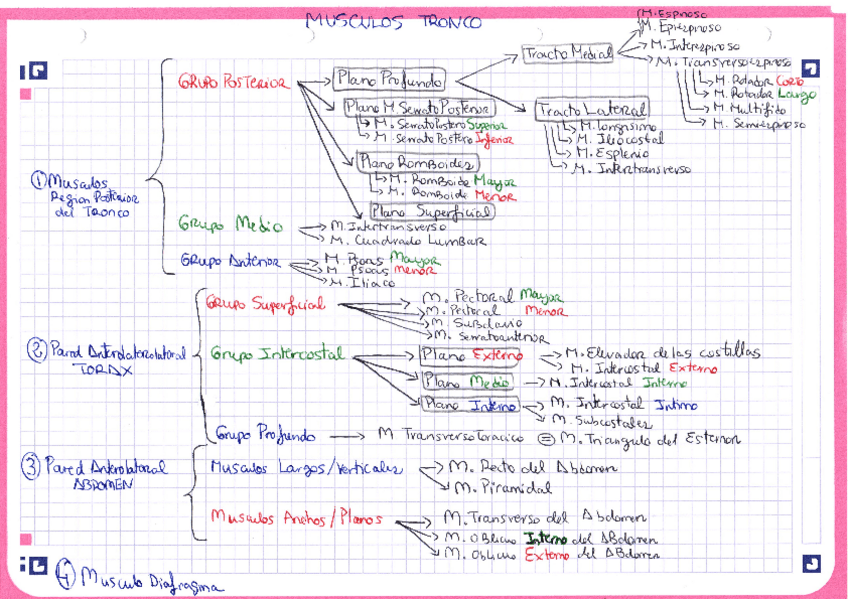 MUSCULOS TRONCO
M. Espinoso
M. Epiespinoso
M. Interespinoso
M. Transversoespinoso
M. Rotador Corto
M. Rotador Largo
M. Multifido
M. Semiespinoso
Tracto Medial
GRUPO POSTERIOR
Plano Profundo
Tracto Lateral
M. longisimo
M. Iliocostal
M. Esplenio
M. Intertransverso
Plano M Serrato Posterior
M. Serrato Postero Superior
M. Serrato Postero Inferior
Plano Romboides
M. Romboide Mayor
M. Romboide Menor
Plano Superficial
① Musculos
Region Posterior
del Tronco
Grupo Medio
M. Intertransverso
M. Cuadrado Lumbar
Grupo Anterior
M. Psoas Mayor
M Psoas Menor
M. Iliaco
② Pared Anterolaterolateral
TORAX
Grupo Superficial
M. Pectoral Mayor
M. Pectoral Menor
M. Subclavio
M. Serratoanterior
Grupo Intercostal
Plano Externo
M. Elevador de las costillas
M. Intercostal Externo
Plano Medio
M. Intercostal Interno
Plano Interno
M. Intercostal Intimo
M. Subcostales
Grupo Profundo
M Transverso Toracico = M. Triangulo del Esternon
③ Pared Anterolateral
ABDOMEN
Musculos Largos/Verticales
M. Recto del Abdomen
M. Piramidal
Musculos Anchos/Planos
M. Transverso del Abdomen
M. Oblicuo Interno del ABdomen
M. Oblicuo Externo del ABdomen
④ Musculo Diafragma